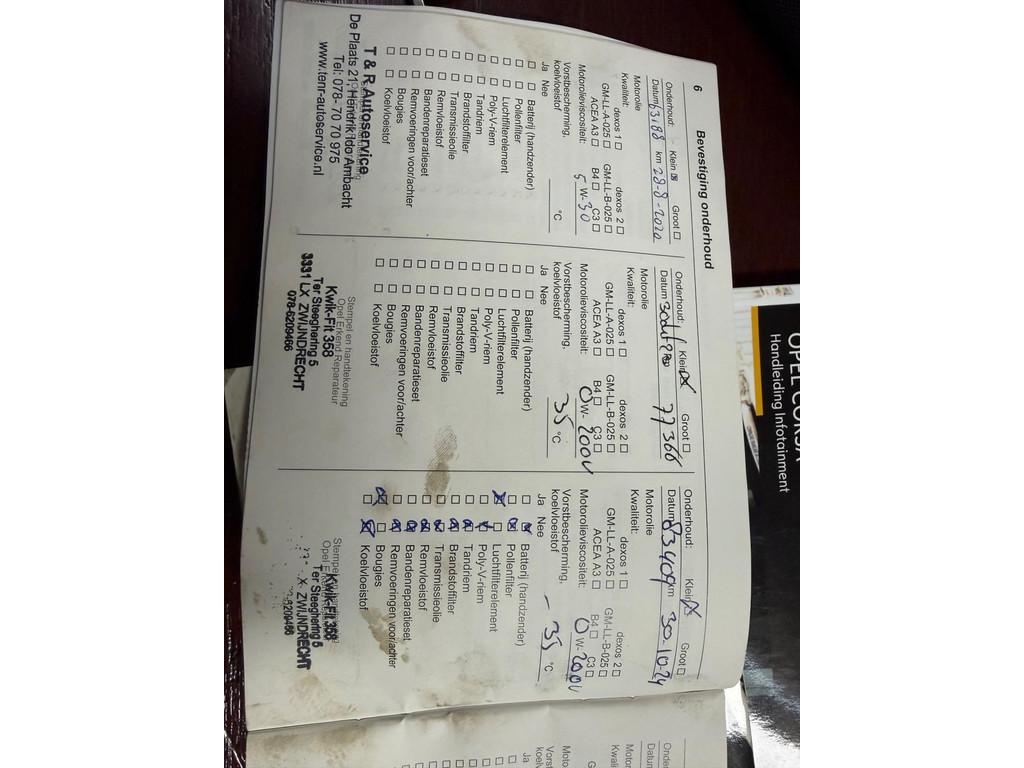 6 Bevestiging onderhoud
Onderhoud: Klein ☒ Groot ☐
Datum 63188 km 28-8-2020
Motorolie
Kwaliteit:
dexos 1 ☐ dexos 2 ☐
GM-LL-A-025 ☐ GM-LL-B-025 ☐
ACEA A3 ☐ B4 ☐ C3 ☐
Motorolieviscositeit: 5 W- 30
Vorstbescherming,
koelvloeistof °C
Ja Nee
☐ ☐ Batterij (handzender)
☐ ☐ Pollenfilter
☐ ☐ Luchtfilterelement
☐ ☐ Poly-V-riem
☐ ☐ Tandriem
☐ ☐ Brandstoffilter
☐ ☐ Transmissieolie
☐ ☐ Remvloeistof
☐ ☐ Bandenreparatieset
☐ ☐ Remvoeringen voor/achter
☐ ☐ Bougies
☐ ☐ Koelvloeistof
T & R Autoservice
De Plaats 21, Hendrik Ido Ambacht
Tel: 078- 70 70 975
www.tenr-autoservice.nl
Onderhoud: Klein ☒ Groot ☐
Datum 77366
Motorolie
Kwaliteit:
dexos 1 ☐ dexos 2 ☐
GM-LL-A-025 ☐ GM-LL-B-025 ☐
ACEA A3 ☐ B4 ☐ C3 ☐
Motorolieviscositeit: 0 W- 20OV
Vorstbescherming,
koelvloeistof 35 °C
Ja Nee
☐ ☐ Batterij (handzender)
☐ ☐ Pollenfilter
☐ ☐ Luchtfilterelement
☐ ☐ Poly-V-riem
☐ ☐ Tandriem
☐ ☐ Brandstoffilter
☐ ☐ Transmissieolie
☐ ☐ Remvloeistof
☐ ☐ Bandenreparatieset
☐ ☐ Remvoeringen voor/achter
☐ ☐ Bougies
☐ ☐ Koelvloeistof
Stempel en handtekening
Opel Erkend Reparateur
Kwik-Fit 358
Ter Steeghering 5
3331 LX ZWIJNDRECHT
078-6209466
Onderhoud: Klein ☒ Groot ☐
Datum 83409 km 30-10-24
Motorolie
Kwaliteit:
dexos 1 ☐ dexos 2 ☐
GM-LL-A-025 ☐ GM-LL-B-025 ☐
ACEA A3 ☐ B4 ☐ C3 ☐
Motorolieviscositeit: 0 W- 20OV
Vorstbescherming,
koelvloeistof - 35 °C
Ja Nee
☐ ☒ Batterij (handzender)
☐ ☒ Pollenfilter
☒ ☐ Luchtfilterelement
☐ ☒ Poly-V-riem
☐ ☒ Tandriem
☐ ☒ Brandstoffilter
☐ ☒ Transmissieolie
☐ ☒ Remvloeistof
☐ ☒ Bandenreparatieset
☐ ☒ Remvoeringen voor/achter
☒ ☐ Bougies
☐ ☒ Koelvloeistof
Kwik-Fit 358
Ter Steeghering 5
ZWIJNDRECHT
6209466
OPEL CORSA
Handleiding Infotainment